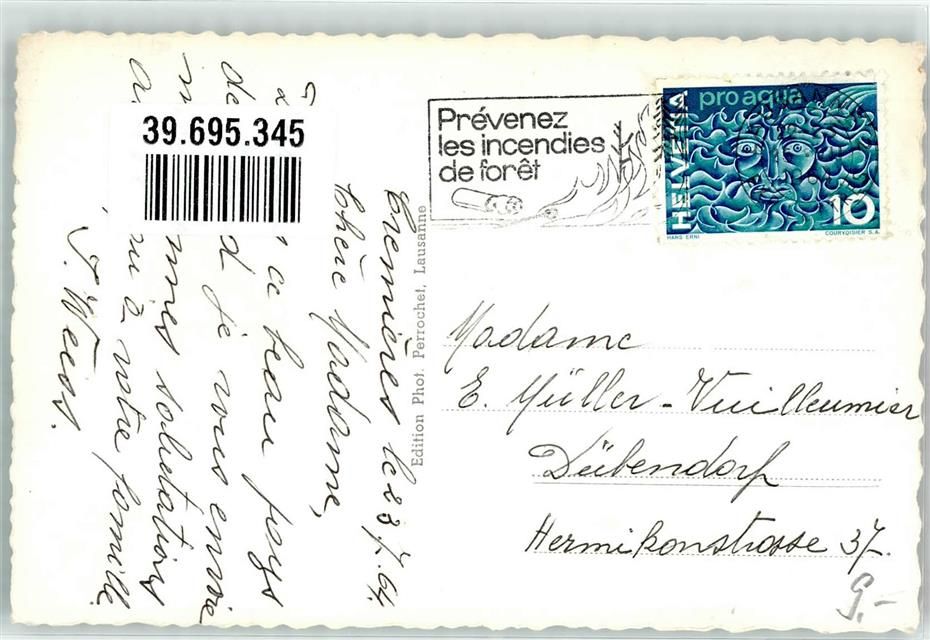 39.695.345
Prévenez
les incendies
de forêt
pro aqua
HELVETIA
10
HANS ERNI
COURVOISIER S.A.
Edition Phot. Perrochet, Lausanne
le 23.7.64.
Chère Madame,
ce beau pays
de je vous envoie
salutations
à votre famille.
J. Weiss.
Madame
E. Müller-Vuilleumier
Dübendorf
Hermikonstrasse 37.
9.-